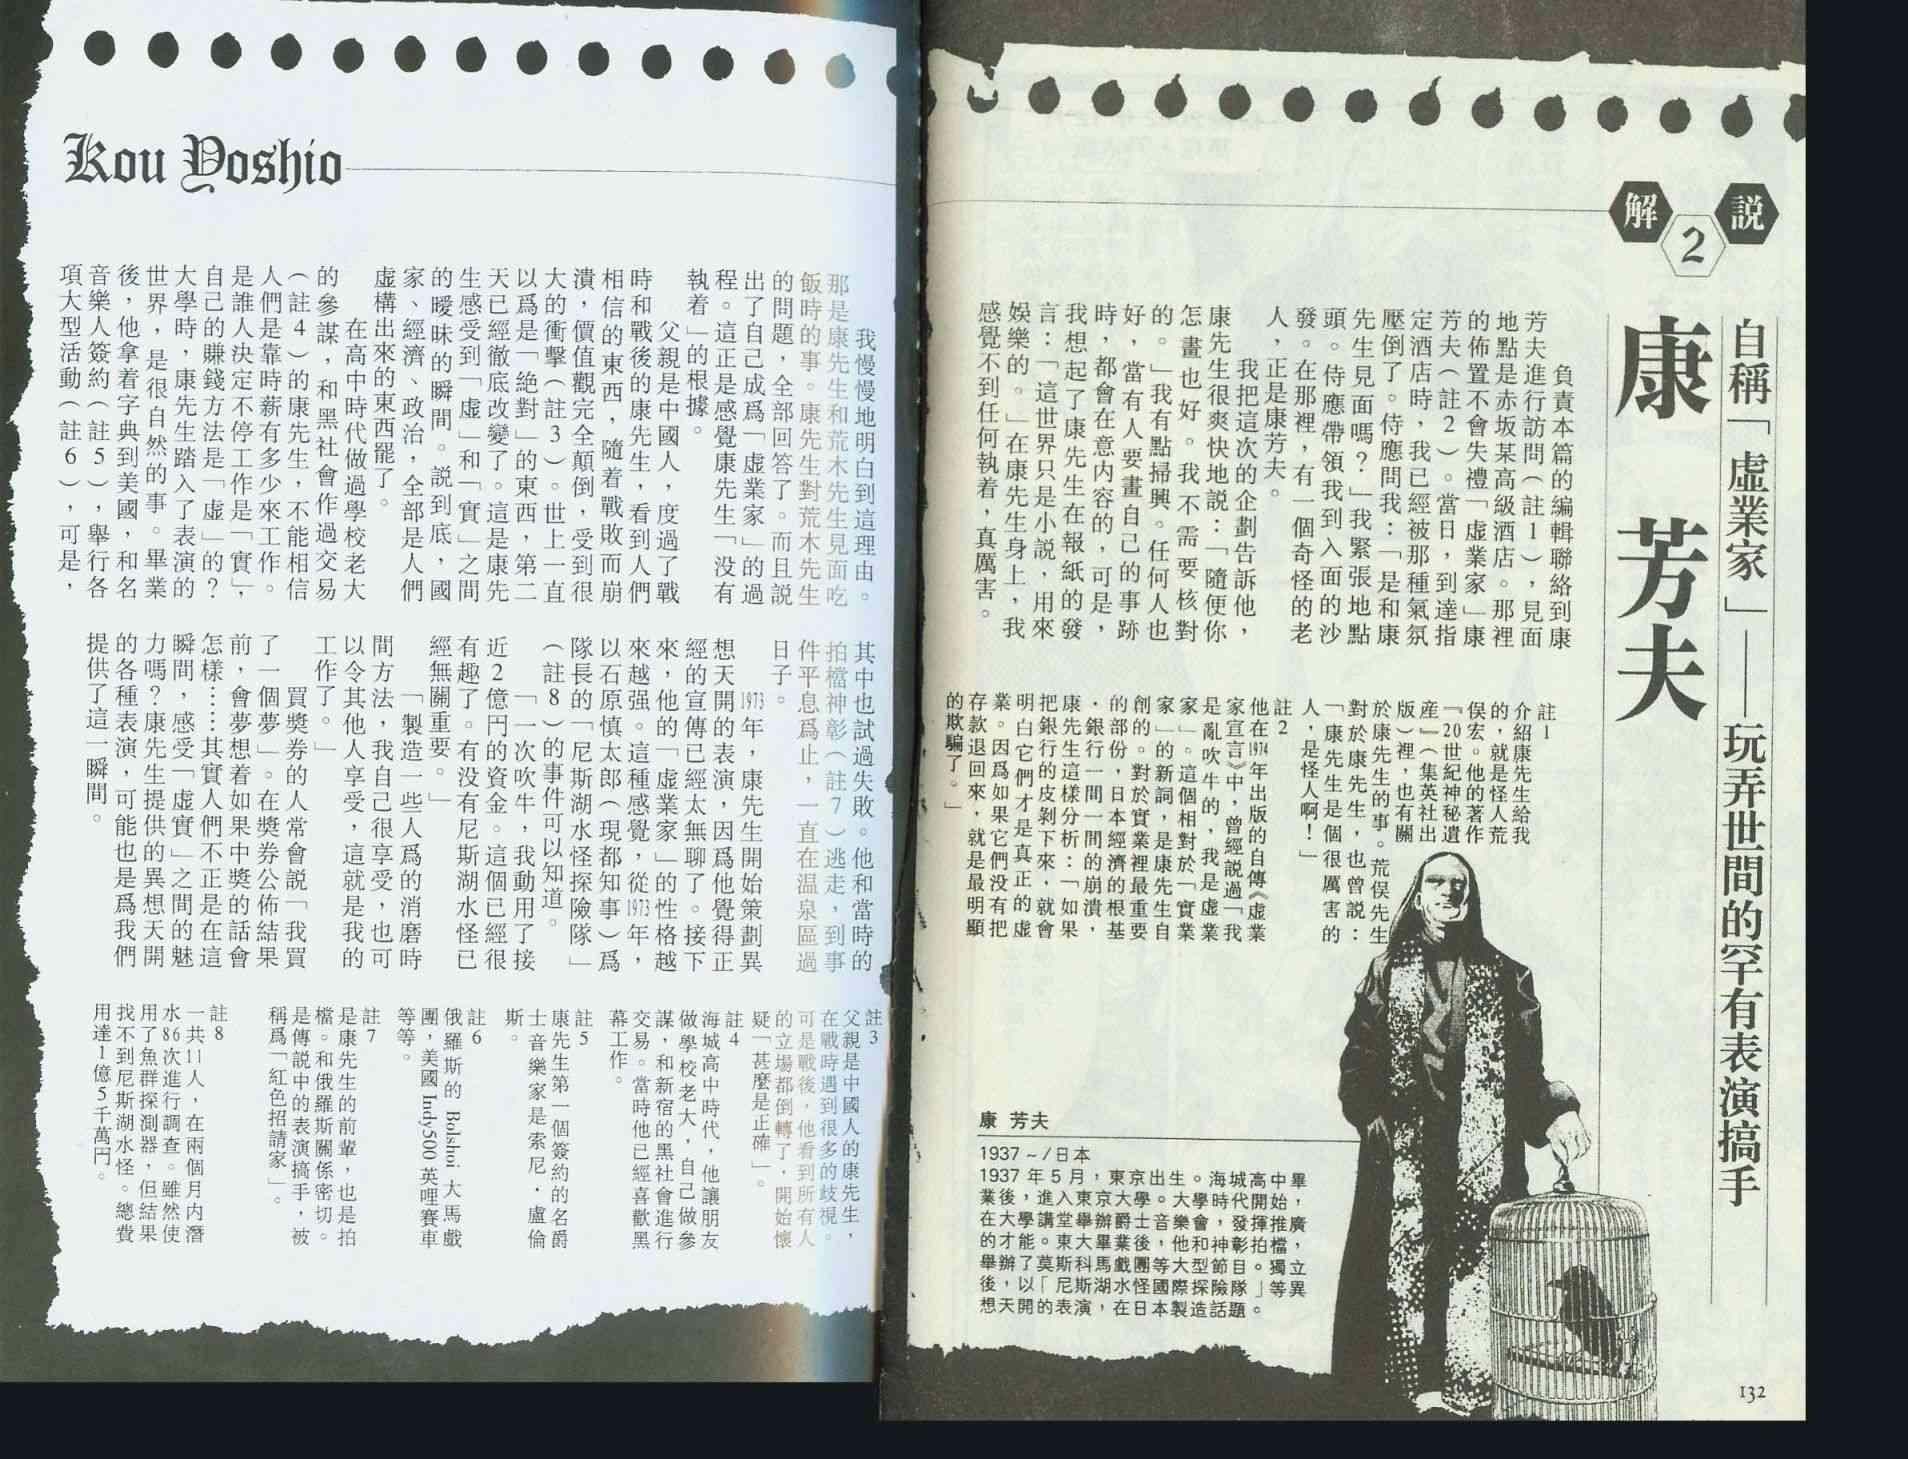 解說2
康 芳夫
自稱「虛業家」——玩弄世間的罕有表演搞手
負責本篇的編輯聯絡到康
芳夫進行訪問(註1)，見面
地點是赤坂某高級酒店。那裡
的佈置不會失禮「虛業家」康
芳夫(註2)。當日，到達指
定酒店時，我已經被那種氣氛
壓倒了。侍應問我：「是和康
先生見面嗎？」我緊張地點
頭。侍應帶領我到入面的沙
發。在那裡，有一個奇怪的老
人，正是康芳夫。
我把這次的企劃告訴他，
康先生很爽快地説：「隨便你
怎畫也好。我不需要核對
的。」我有點掃興。任何人也
好，當有人要畫自己的事跡
時，都會在意内容的，可是，
我想起了康先生在報紙的發
言：「這世界只是小説，用來
娛樂的。」在康先生身上，我
感覺不到任何執着，真厲害。
註1
介紹康先生給我
的，就是怪人荒
俣宏。他的著作
『20世紀神秘遺
産』(集英社出
版)裡，也有關
於康先生的事。荒俣先生
對於康先生，也曾説：
「康先生是個很厲害的
人，是怪人啊！」
註2
他在1974年出版的自傳《虛業
家宣言》中，曾經説過「我
是亂吹牛的，我是虛業
家」。這個相對於「實業
家」的新詞，是康先生自
創的。對於實業裡最重要
的部份，日本經濟的根基
・銀行一間一間的崩潰，
康先生這樣分析：「如果
把銀行的皮剝下來，就會
明白它們才是真正的虛
業。因爲如果它們没有把
存款退回來，就是最明顯
的欺騙了。」
康 芳夫
1937～/日本
1937年5月，東京出生。海城高中畢
業後，進入東京大學。大學時代開始，
在大學講堂舉辦爵士音樂會，發揮推廣
的才能。東大畢業後，他和神彰拍檔，
舉辦了莫斯科馬戲團等大型節目。獨立
後，以「尼斯湖水怪國際探險隊」等異
想天開的表演，在日本製造話題。
132
Kou Yoshio
我慢慢地明白到這理由。
那是康先生和荒木先生見面吃
飯時的事。康先生對荒木先生
的問題，全部回答了。而且説
出了自己成爲「虛業家」的過
程。這正是感覺康先生「没有
執着」的根據。
父親是中國人，度過了戰
時和戰後的康先生，看到人們
相信的東西，隨着戰敗而崩
潰，價值觀完全顛倒，受到很
大的衝擊(註3)。世上一直
以爲是「絶對」的東西，第二
天已經徹底改變了。這是康先
生感受到「虛」和「實」之間
的曖昧的瞬間。説到底，國
家、經濟、政治，全部是人們
虛構出來的東西罷了。
在高中時代做過學校老大
的參謀，和黑社會作過交易
(註4)的康先生，不能相信
人們是靠時薪有多少來工作。
是誰人決定不停工作是「實」，
自己的賺錢方法是「虛」的？
大學時，康先生踏入了表演的
世界，是很自然的事。畢業
後，他拿着字典到美國，和名
音樂人簽約(註5)，舉行各
項大型活動(註6)，可是，
其中也試過失敗。他和當時的
拍檔神彰(註7)逃走，到事
件平息爲止，一直在温泉區過
日子。
1973年，康先生開始策劃異
想天開的表演，因爲他覺得正
經的宣傳已經太無聊了。接下
來，他的「虛業家」的性格越
來越强。這種感覺，從1973年，
以石原慎太郎(現都知事)爲
隊長的「尼斯湖水怪探險隊」
(註8)的事件可以知道。
「一次吹牛，我動用了接
近2億円的資金。這個已經很
有趣了。有没有尼斯湖水怪已
經無關重要。」
「製造一些人爲的消磨時
間方法，我自己很享受，也可
以令其他人享受，這就是我的
工作了。」
買獎券的人常會説「我買
了一個夢」。在獎券公佈結果
前，會夢想着如果中獎的話會
怎樣……其實人們不正是在這
瞬間，感受「虛實」之間的魅
力嗎？康先生提供的異想天開
的各種表演，可能也是爲我們
提供了這一瞬間。
註3
父親是中國人的康先生，
在戰時遇到很多的歧視。
可是戰後，他看到所有人
的立場都倒轉了，開始懷
疑「甚麼是正確」。
註4
海城高中時代，他讓朋友
做學校老大，自己做參
謀，和新宿的黑社會進行
交易。當時他已經喜歡黑
幕工作。
註5
康先生第一個簽約的名爵
士音樂家是索尼・盧倫
斯。
註6
俄羅斯的 Bolshoi 大馬戲
團，美國 Indy500 英哩賽車
等等。
註7
是康先生的前輩，也是拍
檔。和俄羅斯關係密切。
是傳説中的表演搞手，被
稱爲「紅色招請家」。
註8
一共11人，在兩個月内潛
水86次進行調查。雖然使
用了魚群探測器，但結果
找不到尼斯湖水怪。總費
用達1億5千萬円。